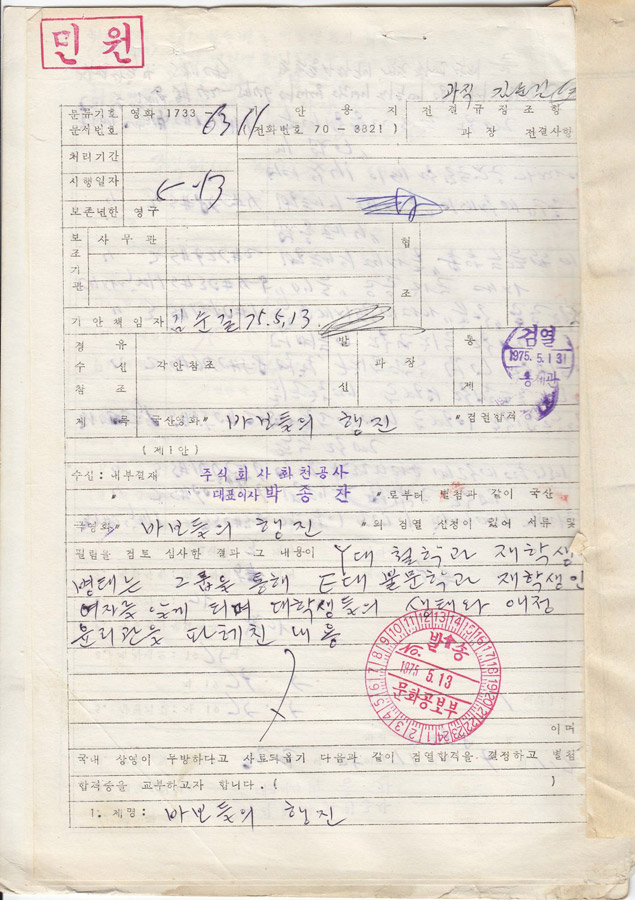 민원
과장 전결규정조항
분류기호 문서번호 영화 1733 6311 기안용지
(전화번호 70-3821) 과장 전결사항
처리기간
시행일자 5-13
보존년한 영구
보조기관 사무관 협조
기안책임자 김순길 75.5.13.
경유 수신 참조 각안참조 발신 과장 통제
검열 1975.5.13
제목 국산영화" 바보들의 행진 "검열합격
(제1안)
수신: 내부결재 주식회사화천공사
" 대표이사 박종찬 "로부터 별첨과 같이 국산
극영화" 바보들의 행진 "의 검열 신청이 있어 서류 및
필림을 검토 심사한 결과 그 내용이 Y대 철학과 재학생
병태는 그룹을 통해 E대 불문학과 재학생인
여자를 알게 되며 대학생들의 생태와 애정
윤리관을 파헤친 내용
발송 No. 1975 5.13 문화공보부
이며
국내 상영이 무방하다고 사료되옵기 다음과 같이 검열합격을 결정하고 별첨
합격증을 교부하고자 합니다. ( )
1. 제명: 바보들의 행진